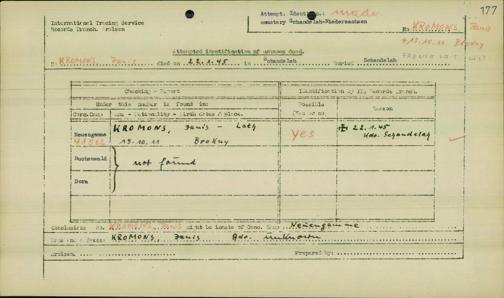 177
International Tracing Service
Records Branch. Arolsen
Attempt. Identific. made
cemetery Schandelah-Niedersachsen
No KROMONS, Janis
Attempted identification of unknown dead.
KROMONS Janis died on 22.1.45 in Schandelah buried Schandelah
Checking - Report
Identification by ITS Records Branch.
Under this number is found in:
Possible
Yes or no
Reason
Conc.Camp Name - Nationality - Birth dates & place.
Neuengamme
KROMONS, Janis - Lett
Yes
22.1.45
13.10.11
Kdo. Schandelah
Buchenwald
not found
Dora
Conclusion: No. KROMONS, Janis might be inmate of Conc. Camp Neuengamme
KROMONS, Janis Adr. unknown
Arolsen,
Prepared by: